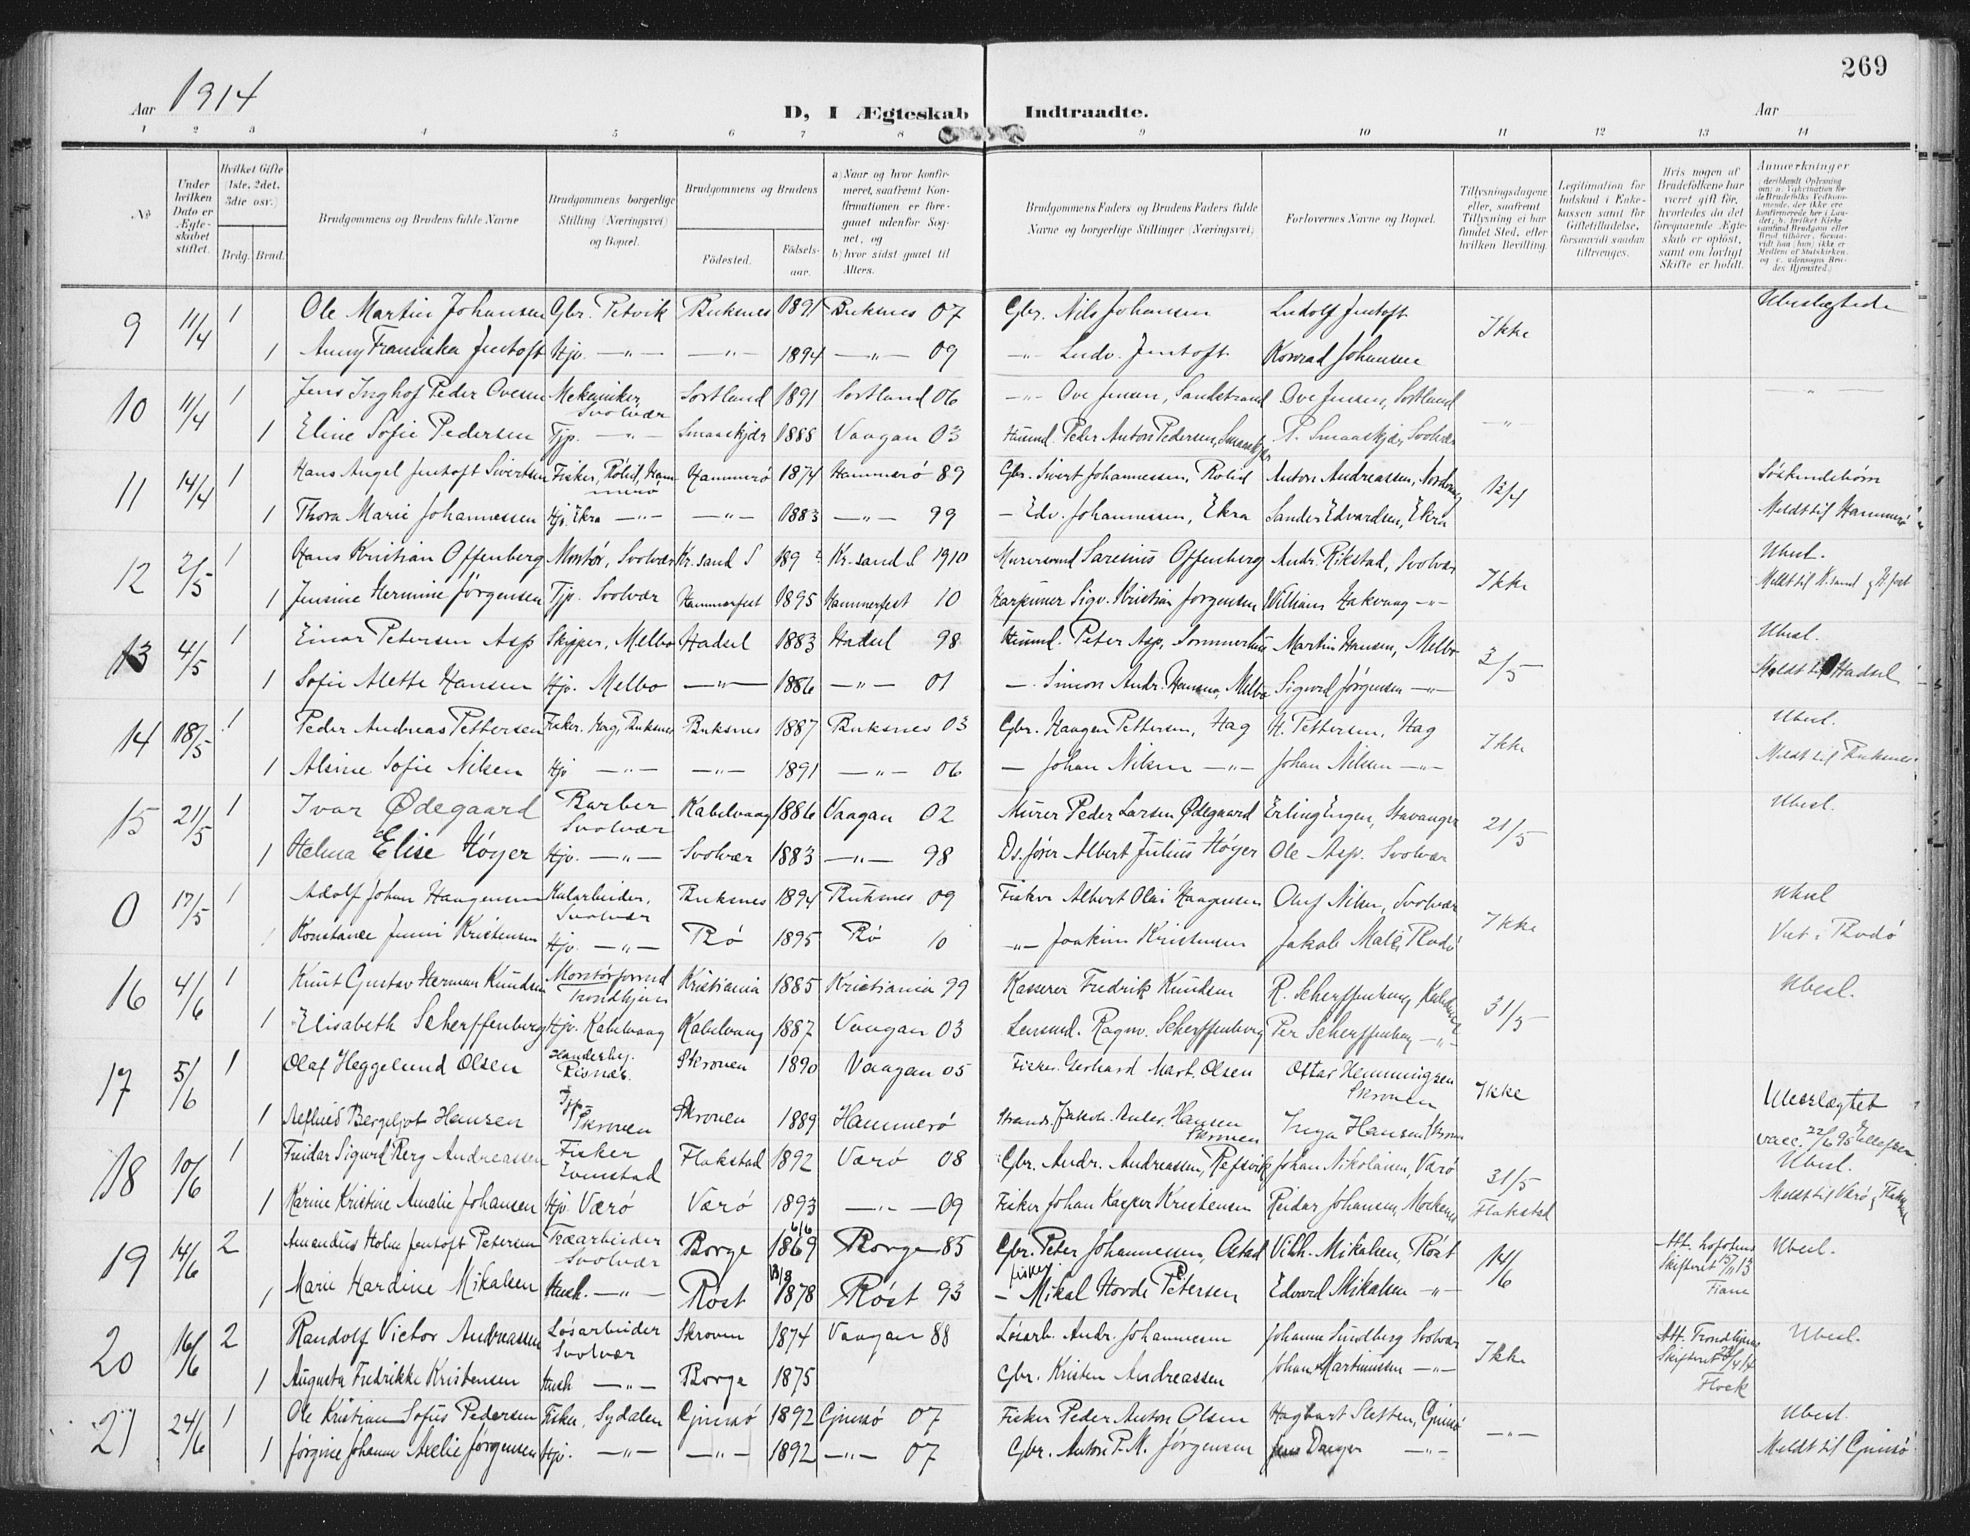 269
Aar 1914 D, I Ægteskab Indtraadte. Aar
1 2 3 4 5 6 7 8 9 10 11 12 13 14
No
Under hvilken Dato er Ægteskabet stiftet.
Hvilket Gifte (1ste, 2det, 3die osv.)
Brdg. Brud.
Brudgommens og Brudens fulde Navne
Brudgommens borgerlige Stilling (Næringsvei) og Bopæl.
Brudgommens og Brudens
Fødested. Fødselsaar.
a) Naar og hvor konfirmeret, saafremt Konfirmationen er foregaaet udenfor Sognet, og
b) hvor sidst gaaet til Alters.
Brudgommens Faders og Brudens Faders fulde Navne og borgerlige Stillinger (Næringsvei)
Forlovernes Navne og Bopæl.
Tillysningsdagene eller, saafremt Tillysning ei har fundet Sted, efter hvilken Bevilling.
Legitimation for Indskud i Enkekassen samt for Giftetilladelse, forsaavidt saadan tiltrænges.
Hvis nogen af Brudefolkene har været gift før, hvorledes da det foregaaende Ægteskab er opløst, samt om lovligt Skifte er holdt.
Anmærkninger
9 11/4 1 Ole Martin Johansen Gbr. Petvik Buksnes 1891 Buksnes 07 Gbr. Nils Johansen Ludolf Jentoft Ikke Ubeslægtede
1 Anny Franciska Jentoft Hjv. —"— —"— 1894 —"— 09 —"— Ludv. Jentoft Konrad Johansen
10 11/4 1 Jens Inghof Peder Ovesen Mekaniker Svolvær Sortland 1891 Sortland 06 —"— Ove Jensen, Sandstrand Ove Jensen, Sortland —"—
1 Eline Sofie Pedersen Tjp. —"— Smaaskjær 1888 Vaagan 03 Husmd. Peder Anton Pedersen, Smaaskjær P. Smaaskjær, Svolvær —"—
11 14/4 1 Hans Angel Jentoft Sivertsen Fisker, Rölid, Hammerö Hammerö 1874 Hammerö 89 Gbr. Sivert Johannessen, Rolid Anton Andreassen, 12/4 Söskendebörn
1 Thora Marie Johannessen Hjv. Ekra —"— —"— 1883 —"— 99 — Edv. Johannessen, Ekra Sander Edvardsen, Ekra Meldt til Hammerö
12 2/5 1 Hans Kristian Offenberg Montör, Svolvær Kr.sand S 189 Kr.sand S. 1910 Murersvend Saresius Offenberg Andr. Rikstad, Svolvær Ikke Ubesl.
1 Jensine Hermine Jörgensen Tjp. Svolvær Hammerfest 1895 Hammerfest 10 Harpuner Sigv. Kristian Jorgensen William Hakvaag —"— Meldt til K.sand og H.fest
13 4/5 1 Einar Petersen Asp Skipper, Melbo Hadsel 1883 Hadsel 98 Husmd. Peter Asp, Martin Hansen, Melbo 3/5 Ubesl.
1 Sofie Alette Hansen Hjv. Melbo —"— 1886 —"— 01 — Simon Andr. Hansen, Melbo Sigurd Jörgensen —"— Meldt til Hadsel
14 18/5 1 Peder Andreas Pettersen Fisker. Hag, Buksnes Buksnes 1887 Buksnes 03 Gbr. Haagen Pettersen, Hag H. Pettersen, Hag Ikke Ubesl.
1 Alsine Sofie Nilsen Hjv —"— —"— 1891 —"— 06 — Johan Nilsen —"— Johan Nilsen —"— Meldt til Buksnes
15 21/5 1 Ivar Ødegaard Barber Svolvær Kabelvaag 1886 Vaagan 02 Murer Peder Larsen Ødegaard Erling Engen, Stavanger 21/5 Ubesl.
1 Helma Elise Höyer Hjv. —"— Svolvær 1883 —"— 98 Ds.förer Albert Julius Höyer Ole Asp. Svolvær
0 17/5 1 Adolf Johan Haagensen Kularbeider, Svolvær Buksnes 1894 Buksnes 09 Fisker Albert Olai Haagensen Oluf Nilsen, Svolvær Ikke Ubesl
1 Konstance Jenni Kristensen Hjv. —"— Bö 1895 Bö 10 —"— Joakim Kristensen Jakob Bodö Viet i Bodö
16 4/6 1 Knut Gustav Herman Knudsen Montörformd Trondhjem Kristiania 1885 Kristiania 99 Kasserer Fredrik Knudsen R. Scherffenberg, Kabelvaag 31/5 Ubesl.
1 Elisabeth Scherffenberg Hjv. Kabelvaag Kabelvaag 1887 Vaagan 03 Lensmd. Ragnv. Scherffenberg Per Scherffenberg —"—
17 5/6 1 Olaf Heggelund Olsen Handelsbj. Risvær. Skroven 1890 Vaagan 05 Fisker Gerhard Mart. Olsen Ottar Hemmingsen Skroven Ikke Ubeslægtet
1 Bergljot Hansen Tjp. Skroven Skroven 1889 Hammerö Jakob. Hansen Skroven Inga Hansen, Skroven vacc. 22/6 95 Ellefsen.
18 10/6 1 Freidar Sigurd Berg Andreassen Fisker Evenstad Flakstad 1892 Værö 08 Gbr. Andr. Andreassen, Refsvik Johan Nikolaisen, Værö 31/5 Flakstad Ubesl.
1 Karine Kristine Amalie Johansen Hjv. Værö Værö 1893 —"— 09 Fisker Johan Kasper Kristensen Reidar Johansen, Meldt til Værö og Flakstad
19 14/6 2 Amandus Holm Jentoft Petersen Træarbeider Svolvær Borge 6/6 1869 Borge 85 Gbr. Peter Johannessen, Vilh. Mikalsen, Röst 14/6 Att. Lofotens Skifteret 15/11 13 Ubesl.
1 Marie Hardine Mikalsen Hush. —"— Röst 13/8 1878 Röst 93 fisker — Mikal Hovde Petersen Edvard Mikalsen —"—
20 16/6 2 Randolf Victor Andreassen Lösarbeider Svolvær Skroven 1874 Vaagan 88 Lösarb. Andr. Johannesen Johannes Sundberg Svolvær Ikke Att. Trondhjems Skifteret Flock Ubesl.
1 Augusta Fredrikke Kristensen Hush —"— Borge 1875 Gbr. Kristen Andreassen Johan Martinussen —"—
21 24/6 1 Ole Kristian Sofus Pedersen Fisker, Sydalen Gimsö 1892 Gimsö 07 Fisker Peder Anton Olsen Hagbart Sletten, Gimsö —"— Ubesl.
1 Jörgine Johanne Axelie Jörgensen Hjv. —"— —"— 1892 —"— 07 Gbr. Anton P. M. Jörgensen Jens Dreyer —"— Meldt til Gimsö